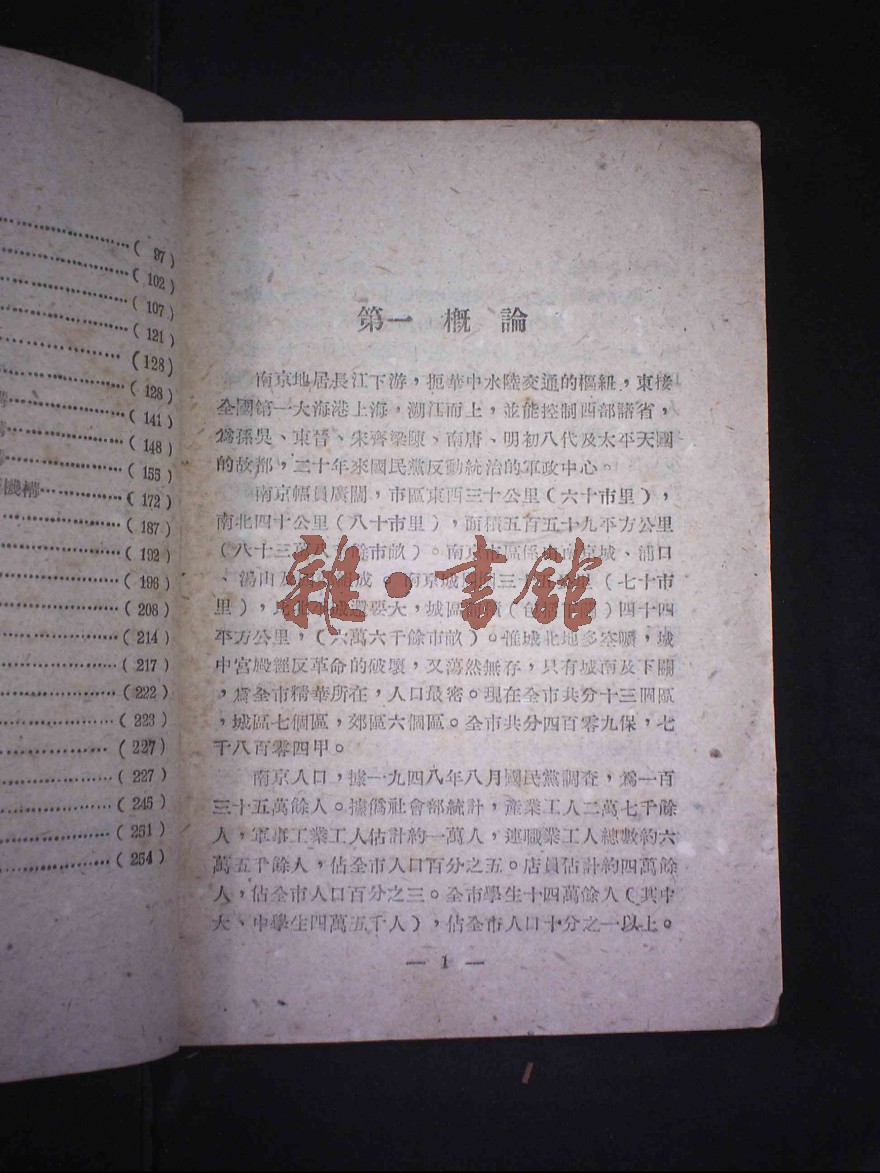 (97)
(102)
(107)
(121)
(128)
(128)
(141)
(148)
(155)
機構 (172)
(187)
(192)
(196)
(208)
(214)
(217)
(222)
(223)
(227)
(227)
(245)
(251)
(254)
第一 概論
南京地居長江下游，扼華中水陸交通的樞紐，東接
全國第一大海港上海，溯江而上，並能控制西部諸省，
爲孫吳、東晉、宋齊梁陳、南唐、明初八代及太平天國
的故都，三十年來國民黨反動統治的軍政中心。
南京幅員廣闊，市區東西三十公里（六十市里），
南北四十公里（八十市里），面積五百五十九平方公里
（八十三萬八千餘市畝）。南京市區係由南京城、浦口
、湯山及四郊組成。南京城四周三十五公里（七十市
里），比北平城還要大，城區面積（包括下關）四十四
平方公里，（六萬六千餘市畝）。惟城北地多空曠，城
中宮殿經反革命的破壞，又蕩然無存，只有城南及下關
，爲全市精華所在，人口最密。現在全市共分十三個區
，城區七個區，郊區六個區。全市共分四百零九保，七
千八百零四甲。
南京人口，據一九四八年八月國民黨調查，爲一百
三十五萬餘人。據僞社會部統計，產業工人二萬七千餘
人，軍事工業工人估計約一萬人，連職業工人總數約六
萬五千餘人，佔全市人口百分之五。店員估計約四萬餘
人，佔全市人口百分之三。全市學生十四萬餘人（其中
大、中學生四萬五千人），佔全市人口十分之一以上。
— 1 —
雜·書館